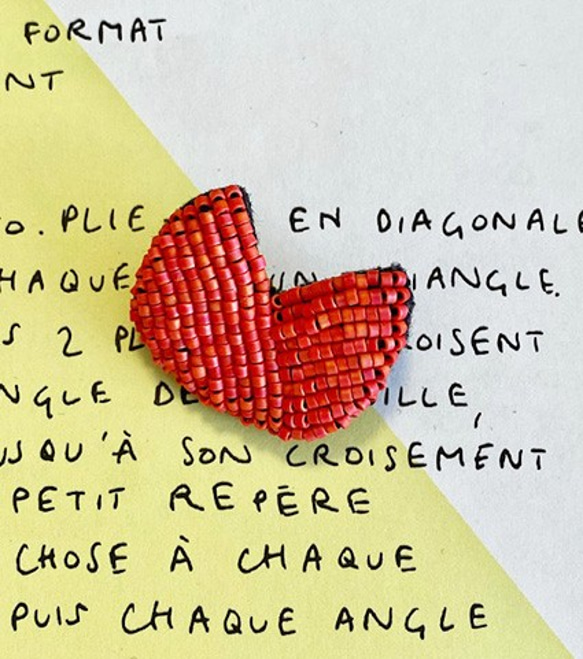 FORMAT
NT
O. PLIE EN DIAGONALE
HAQUE UN IANGLE.
S 2 PL OISENT
NGLE DE ILLE,
USQU'À SON CROISEMENT
PETIT REPÈRE
CHOSE À CHAQUE
PUIS CHAQUE ANGLE